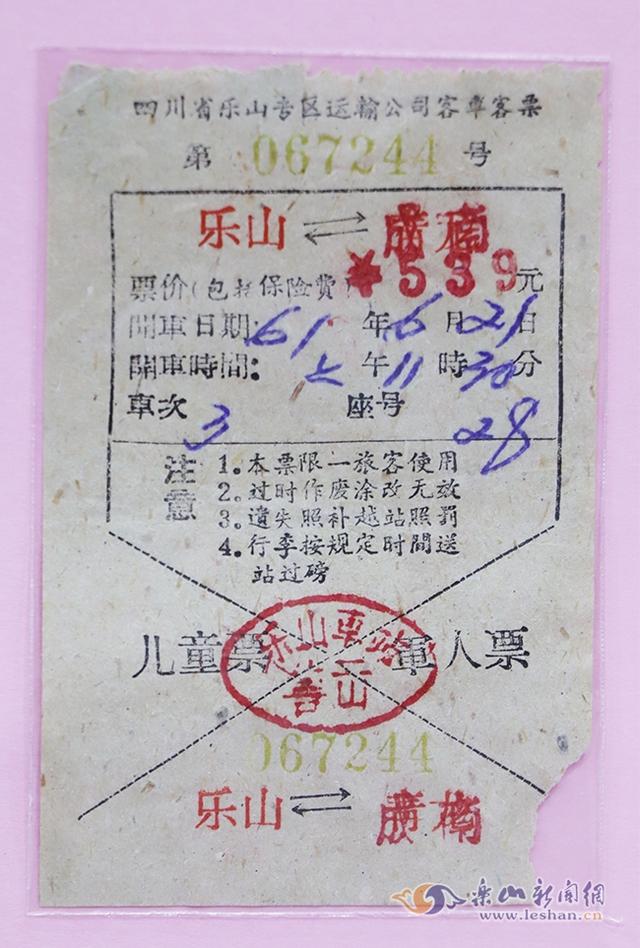 四川省乐山专区运输公司客車客票
第 067244 号
乐山 ⇌
*539元
票价(包括保险费)
開車日期: 61年6月21日
開車時間: 上午11時30分
車次 3 座号 28
注意
1.本票限一旅客使用
2.过时作废涂改无效
3.遺失照补越站照罰
4.行李按规定时間送
站过磅
儿童票 軍人票
乐山車站
067244
乐山 ⇌
乐山新闻網
www.leshan.cn